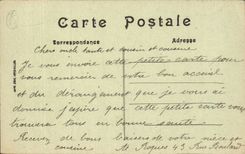 Carte Postale
Correspondance
Adresse
Cher oncle tante et cousin et cousine
Je vous envoie cette petite carte pour
vous remercier de votre bon accueil
et du dérangement que je vous ai
donnée j'espère que cette petite carte vous
trouvera tous en bonne santé
Recevez de bons baisers de votre nièce et
cousine
Roques 43 Rue